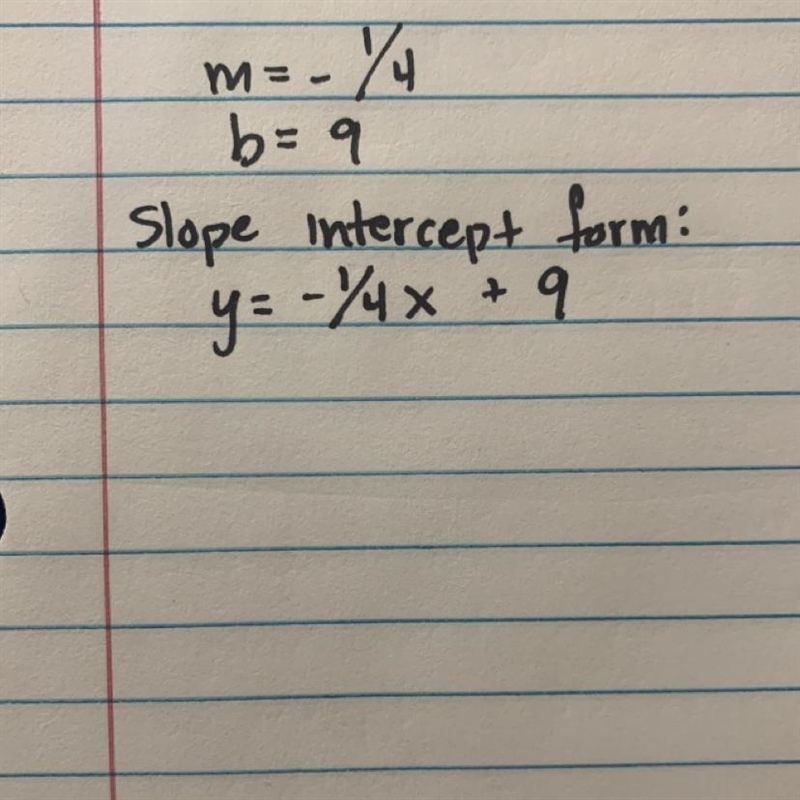 m = - 1/4
b = 9
Slope intercept form:
y = - 1/4 x + 9